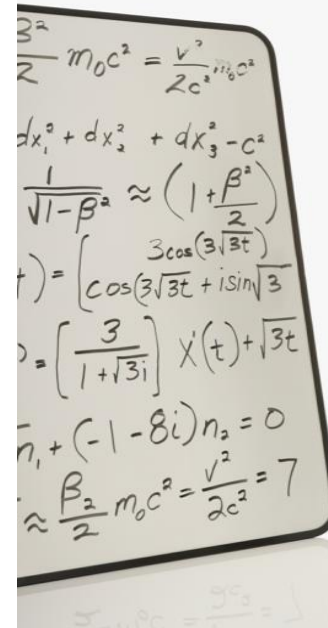 3²/2 m₀c² = v²/2c² m₀c²
dx₁² + dx₂² + dx₃² - c²
1/√(1-β²) ≈ (1 + β²/2)
3cos(3√3t)
t) = [cos(3√3t + isin√3
) = [3/(1+√3i)] X'(t) + √3t
n₁ + (-1 - 8i)n₂ = 0
≈ β₂/2 m₀c² = v²/2c² = 7